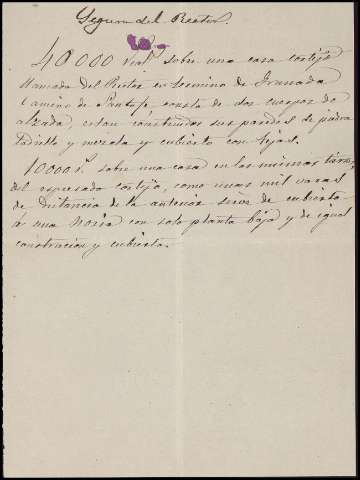 Seguro del Rector.
40000 real.s sobre una casa cortijo
llamada del Rector en termino de Granada
Camino de Santafe, consta de dos cuerpos de
alzada, estan construidas sus paredes de piedra
ladrillo y mezcla y cubierto con tejas.
10000 r.s sobre una casa en las mismas tierras
del espresado cortijo, como unas mil varas
de distancia de la anterior sirve de cubierta
á una Noria con solo planta baja y de igual
construccion y cubierta.